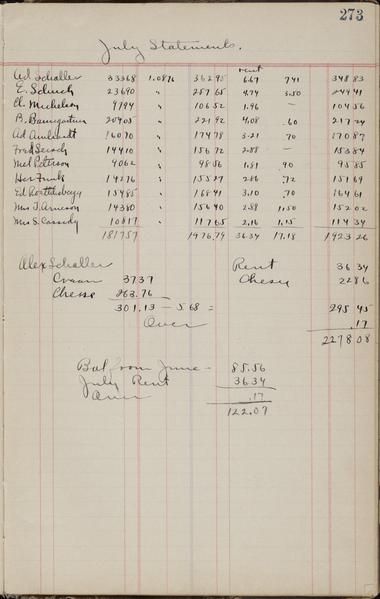 273
July Statements.
rent
Ad Schaller 33368 1.0876 362 95 6.67 7.41 348 83
E. Schuch 23690 " 257 65 4.74 3.50 249 41
Cl. Michelson 9794 " 106 52 1.96 — 104 56
B. Baumgartner 20405 " 221 92 4.08 .60 217 24
Ad Amhardt 16070 " 174 78 3.21 .70 170 87
Fred 14410 " 156 72 2.88 — 153 84
Mel Peterson 9062 " 98 56 1.81 .90 95 85
Her Funk 14276 " 155 27 2.86 .72 151 69
Ed 15485 " 168 41 3.10 .70 164 61
Mrs T. Arneson 14380 " 156 40 2.88 1.50 152 02
Mrs S. Cassidy 10817 " 117 65 2.16 1.15 114 34
181757 1976.79 36 34 17.18 1923 26
Alex Schaller Rent 36 34
Cream 37 37 Cheese 22 86
Cheese 263.76
301.13 — 5.68 = 295 45
Over .17
2278 08
Bal from June — 85.56
July Rent 36 34
Over .17
122.07